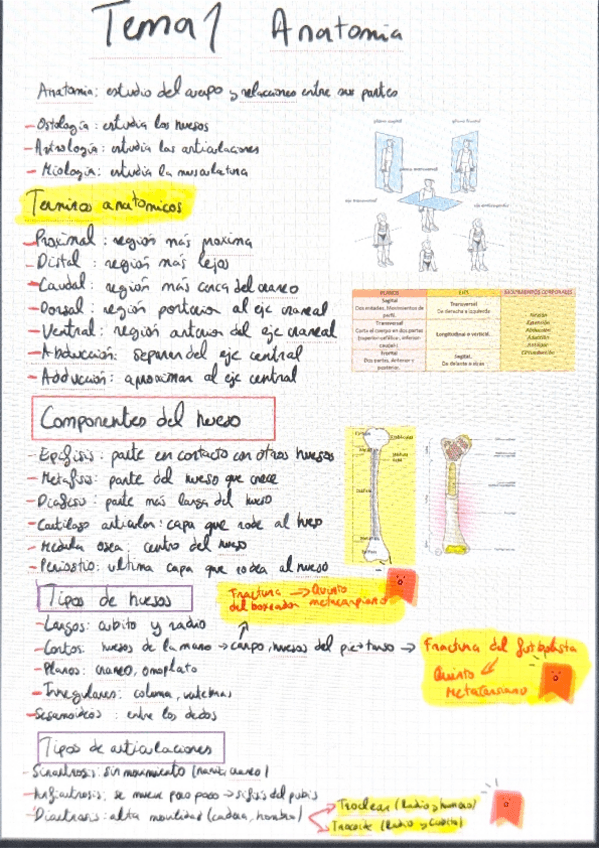 Tema 1 Anatomia
Anatomia: estudio del cuerpo y relaciones entre sus partes
- Ostología: estudia los huesos
- Astrología: estudia las articulaciones
- Miología: estudia la musculatura
plano sagital
plano frontal
plano transversal
eje transversal
eje anteroposterior
Terminos anatomicos
- Proximal: región más proxima
- Distal: región más lejos
- Caudal: región más cerca del craneo
- Dorsal: región posterior al eje craneal
- Ventral: región anterior del eje craneal
- Abducción: separar del eje central
- Adducción: aproximar al eje central
PLANOS EJES MOVIMIENTOS CORPORALES
Sagital
Dos mitades. Movimientos de perfil.
Transversal
De derecha a izquierda
Transversal
Corta el cuerpo en dos partes
Longitudinal o vertical.
Frontal
Dos partes. Anterior y posterior.
Sagital.
De delante a atras
Flexión
Extensión
Abducción
Aducción
Rotación
Circunducción
Componentes del hueso
- Epifisis: parte en contacto con otros huesos
- Metafisis: parte del hueso que crece
- Diafisis: parte más larga del hueso
- Cartilago articular: capa que rode al hueso
- Medula osea: centro del hueso
- Periostio: ultima capa que rodea al hueso
Tipos de huesos
Fractura → Quinto
del boxeador metacarpiano
- Largos: cubito y radio
- Cortos: huesos de la mano → carpo, huesos del pie → tarso → Fractura del futbolista
Quinto
Metatarsiano
- Planos: craneo, omoplato
- Irregulares: columa, vertebras
- Sesamoideos: entre los dedos
Tipos de articulaciones
- Sinartrosis: sin movimiento (nariz, craneo)
- Anfiartrosis: se mueve poco poco → sifisis del pubis
- Diartrosis: alta movilidad (cadera, hombro)
Troclear (Radio y humero)
Trocoide (Radio y Cubito)